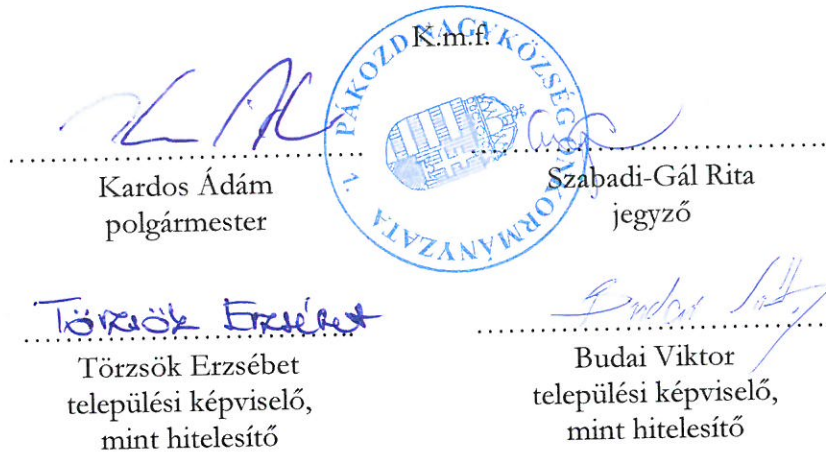 K.m.f.
PÁKOZD NAGYKÖZSÉG ÖNKORMÁNYZATA 1.
Kardos Ádám
polgármester
Szabadi-Gál Rita
jegyző
Törzsök Erzsébet
Törzsök Erzsébet
települési képviselő,
mint hitelesítő
Budai
Budai Viktor
települési képviselő,
mint hitelesítő